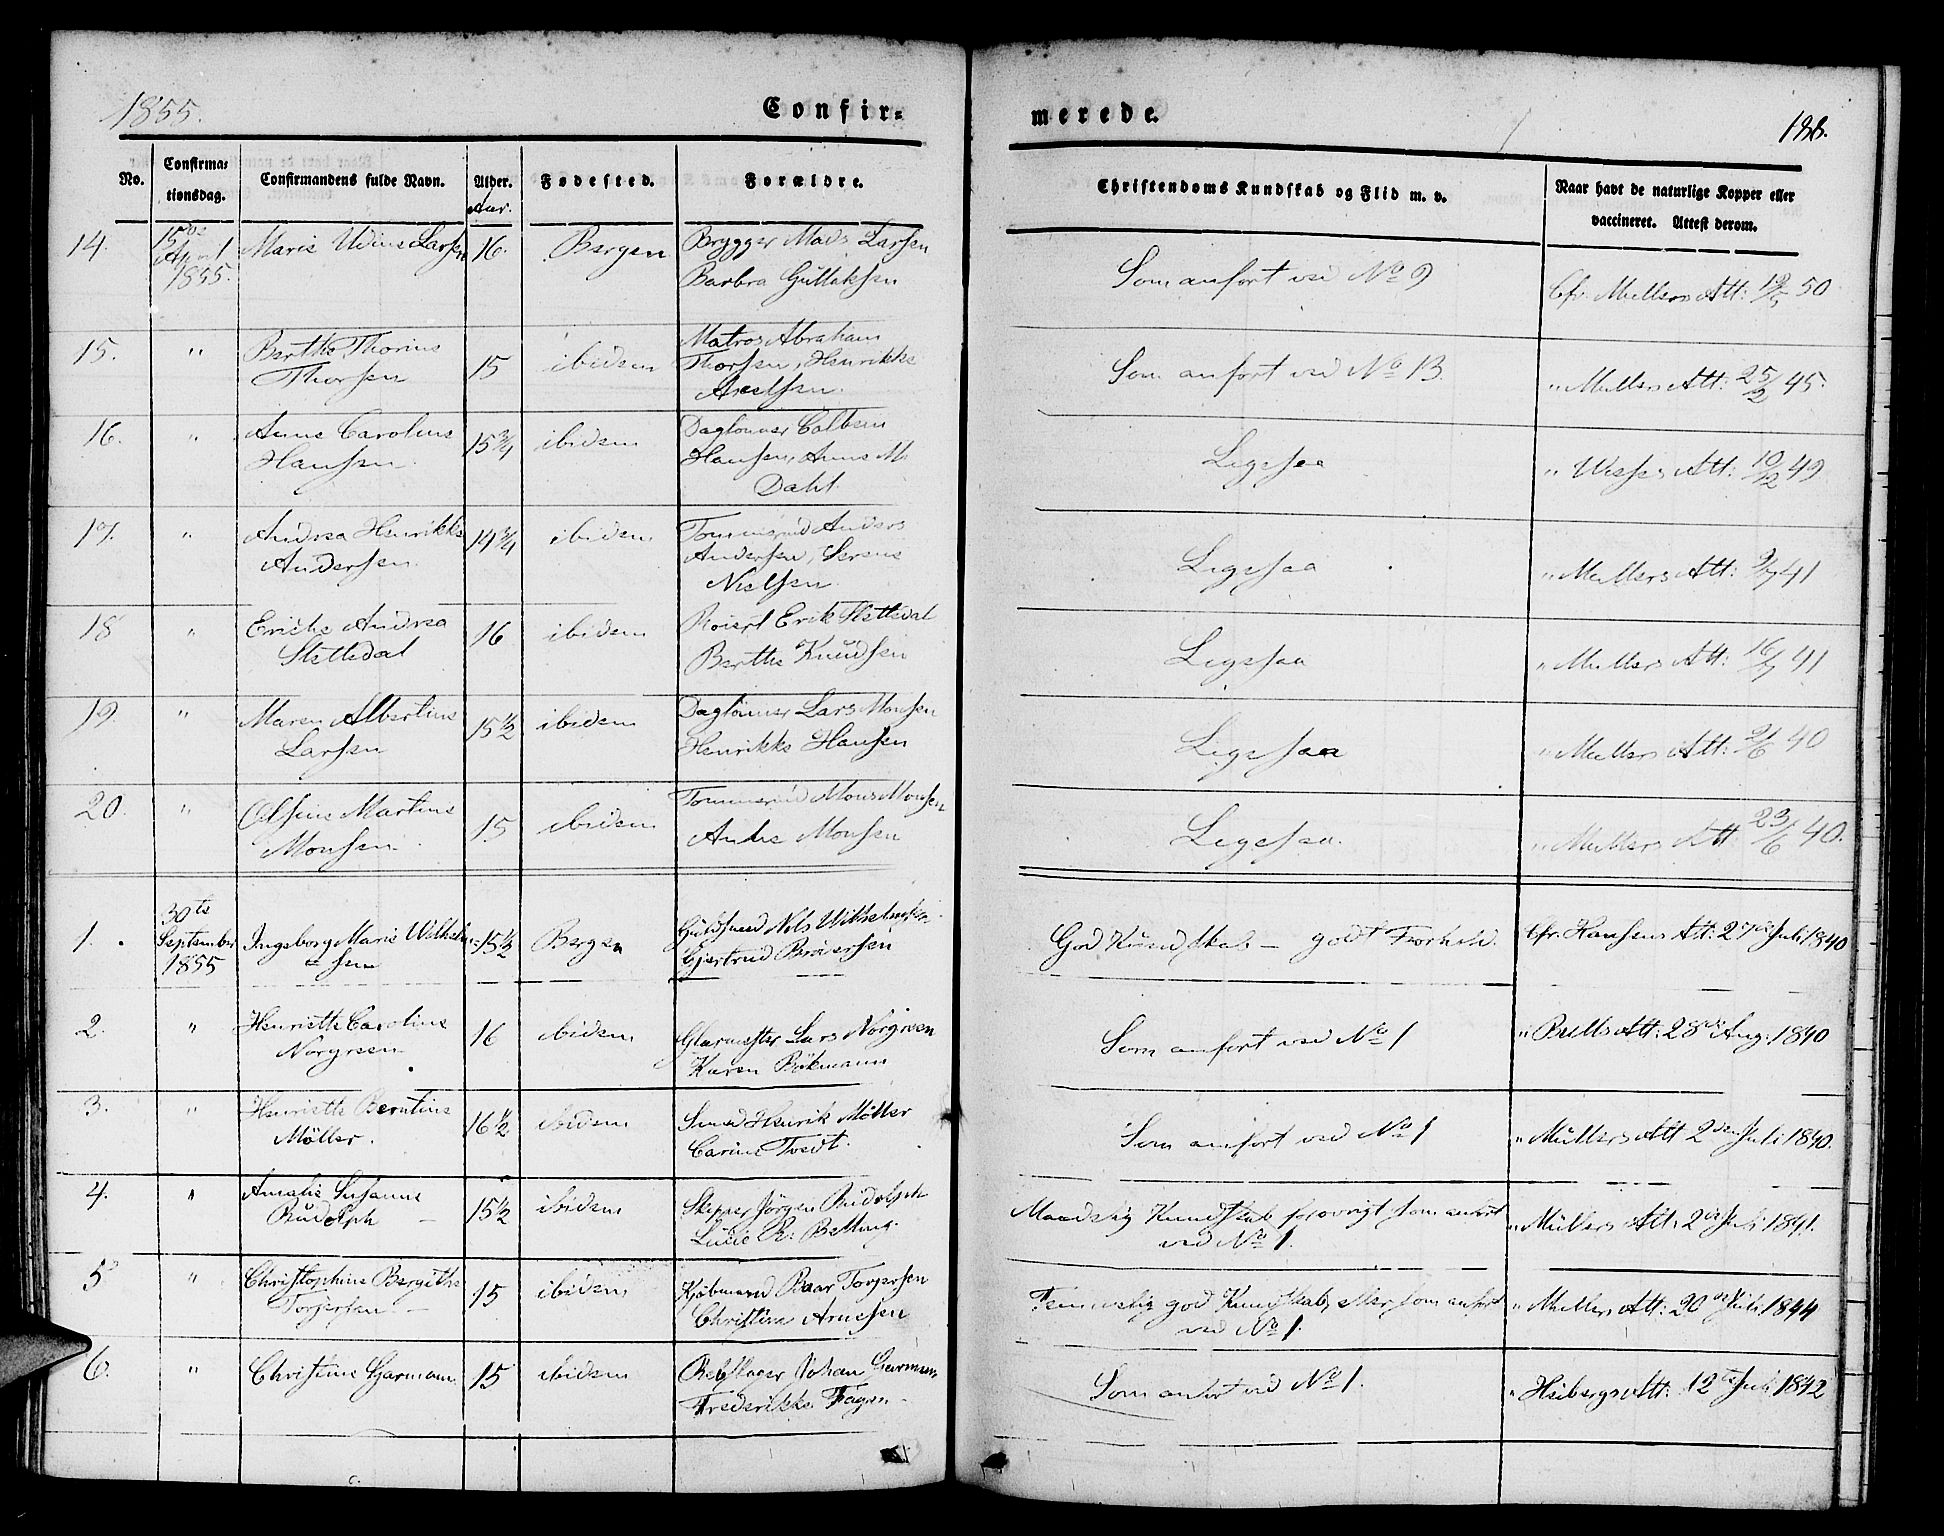 1855.
Confir=
merede.
188.
No.
Confirma=
tionsdag.
Confirmandens fulde Navn.
Alder.
Aar.
Fødested.
Forældre.
Christendoms Kundskab og Flid m. v.
Naar havt de naturlige Kopper eller
vaccineret. Attest derom.
14. 15de April 1855. Marie Udine Larsen 16. Bergen Brygger Mads Larsen
Barbra Gullaksen
Som anført ved No 9 Cfr. Mullers Att: 19/5 50
15. " Berthe Thorine
Thorsen 15 ibidem Matros Abraham
Thorsen, Henrikke
Axelsen.
Som anført ved No 13. " Mullers Att: 25/2 45.
16. " Anne Caroline
Hansen. 15 3/4 ibidem Daglønner Colben
Hansen, Anne M.
Dahl.
Ligesaa " Wesses Att: 10/12 49
17. " Andrea Henrikke
Andersen. 14 3/4 ibidem Tømmermd Anders
Andersen, Serene
Nielsen.
Ligesaa " Mullers Att: 9/7 41
18 " Eriche Andrea
Slettedal 16 ibidem Erik Slettedal
Berthe Knudsen
Ligesaa " Mullers Att: 16/7 41
19. " Maren Albertine
Larsen 15 1/2 ibidem Daglønner Lars Monsen
Henrikke Hansen
Ligesaa " Mullers Att: 40
20. " Olsine Martine
Monsen. 15 ibidem Tømmermd Mons Monsen
Anne Monsen
Ligesaa. " Mullers Att 23/6 40.
1. 30te September 1855 Ingeborg Marie Wilhelm=
sen 15 1/2 Bergen Guldsmed Nels Wilhelmsen
Gjertrud Brøersen
God Kundskab - godt Forhold. Cfr. Hansens Att: 27de Juli 1840
2. " Henriette Caroline
Norgreen 16 ibidem Glarmester Lars Norgreen
Karen Bøkmann
Som anført ved No 1 " Bulls Att: 28de Aug: 1840
3. " Henriette Berntine
Møller. 16 1/2 ibidem Smed Henrik Møller
Carine Tvedt.
Som anført ved No 1 " Müllers Att 2den Juli 1840.
4. " Amalie Susanne
Rudolph 15 1/2 ibidem Skipper Jörgen Rudolph
Lucie R: Betting.
Maadelig Kundskab forøvrigt som anført
ved No 1. " Müllers Att: 2de Juli 1841.
5 " Christophine Bergithe
Torgersen - 15 ibidem Kjøbmand Baar Torgersen
Christina Arnesen
Temmelig god Kundskab, eller som anført
ved No 1. " Mullers Att: 20de Juli 1844
6. " Christine Garmann. 15 ibidem Rebslager Johan Garmann
Frederikke Fagen.
Som anført ved No 1. " Heibergs Att: 12te Juli 1842